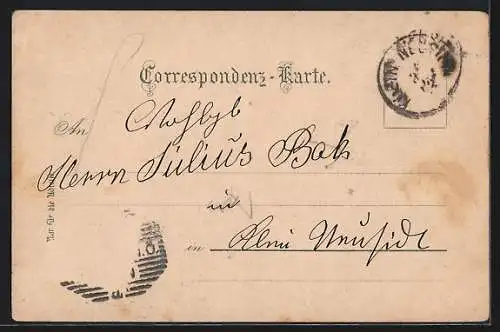 Correspondenz-Karte.
An Wohlgb
Herrn Julius Bak
in
in Klein Neusidl
Nur für die Adresse
KLEIN NEUSIEDL